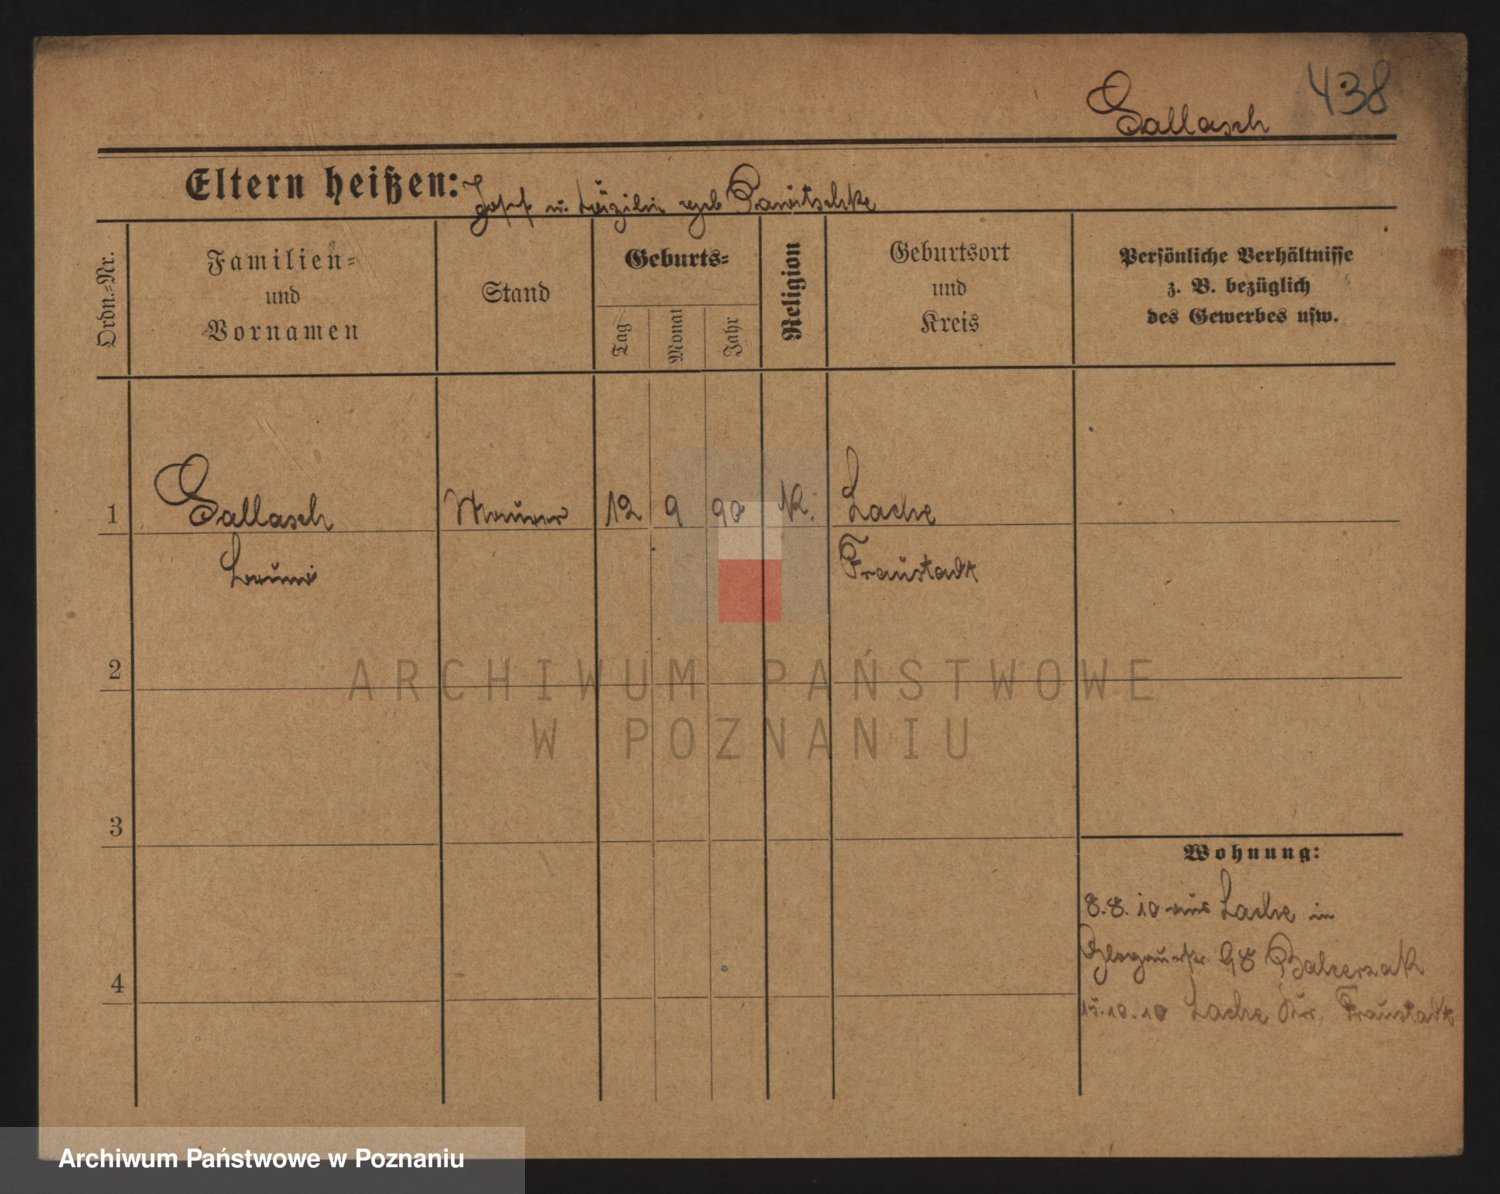 438
Gallasch
Eltern heißen: Josef u. Cäzilie geb Panitschke
Ordn.-Nr.
Familien-
und
Vornamen
Stand
Geburts-
Tag
Monat
Jahr
Religion
Geburtsort
und
Kreis
Persönliche Verhältnisse
z. B. bezüglich
des Gewerbes usw.
1 Gallasch Maurer 12 9 90 K. Lache
Fraustadt
2
3
4
Wohnung:
8.8.10 aus Lache in
Glogauerstr. 98 Balcerzak
15.10.10 Lache Kr. Fraustadt
ARCHIWUM PAŃSTWOWE
W POZNANIU
Archiwum Państwowe w Poznaniu